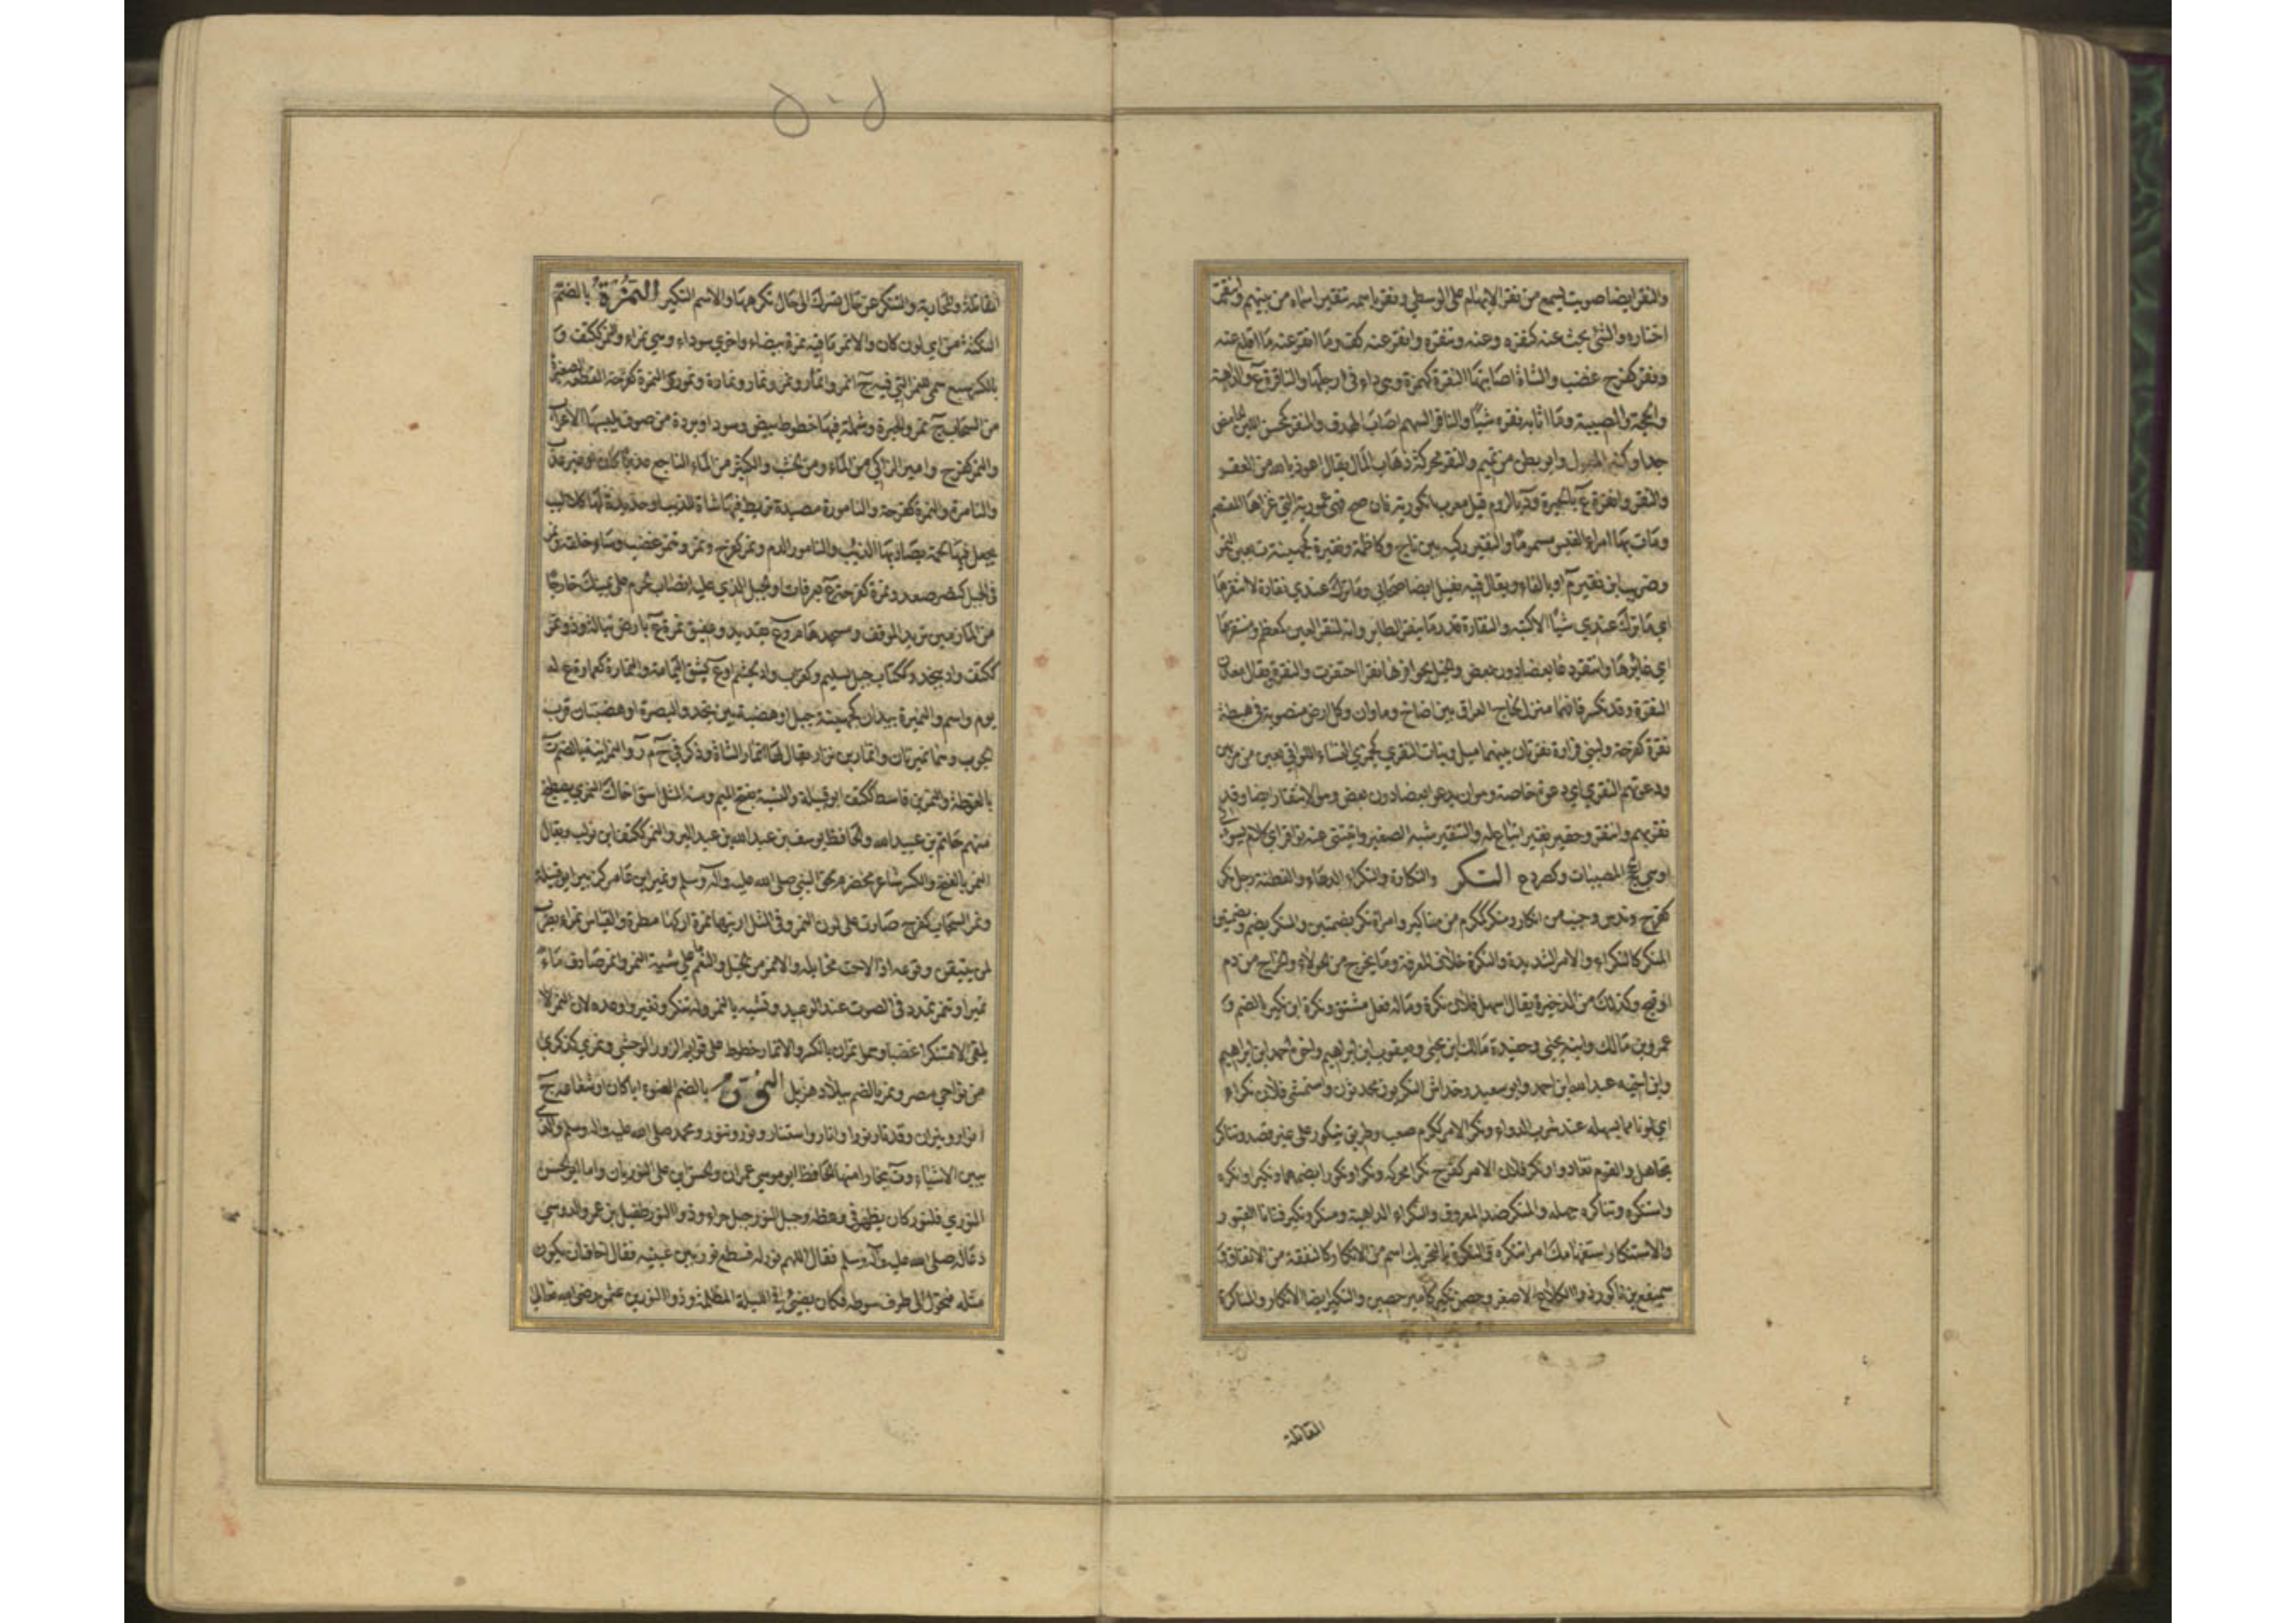 والنقر ايضا صويت يسمع من نقر الابهام على الوسطى ونقر باسمه تنقيرا سماه من بينهم وانتقر
اختاره والشئ بحث عنه كنقره وعنه وتنقره وانقر عنه كف وما انقر عنه ما اقلع عنه
ونقر كفرح غضب والشاة اصابتها النقرة كهمزة وهي داء في ارجلها والناقرة ع والداهية
والحجة والمصيبة وما اثابه نقره شيًا والناقر السهم اصاب الهدف والمنقر كمحسن اللبن الحامض
جدا وكنبر المعول وابو بطن من تميم والنقر محركة ذهاب المال يقال اعوذ بالله من العقر
والنقر وانقرة ع بالحيرة ود بالروم قيل معرب انكورية فان صح فهى عمورية التي غزاها المعتصم
ومات بها امراء القيس مسموما والنقير ركية بين ثاج وكاظمة ونقيرة كجهينة ة بعين التمر
وضريب ابن نقير م او بالفاء ويقال فيه نفيل ايضا صحابي وما ترك عندي نقارة لا انتقرها
اي ما ترك عندي شيًا الا كتبه والنقارة قدر ما ينقر الطاير وانه لمنقر العين كمعظم ومنتقرها
اي غائرها وانتقر دعا بعضا دون بعض والخيل بحوافرها نقرا احتفرت والنقرة يقال معدن
النقرة وقد تكسر قافهما منزل لحاج العراق بين اضاخ وماوان وكل ارض منصوبة في هبطة
نقرة كفرحة ولبني فزارة نقرتان بينهما ميل وبنات النقرى كجمزى النساء اللواتي يعبن من مر بهن
ودعوتهم النقرى اي دعوة خاصة وهو ان يدعو بعضا دون بعض وهو الانتقار ايضا وقد
نقر بهم وانتقر وحقير نقير اتباع له والتنقير شبه الصفير واتتني عنه نواقر اي كلام يسوء
او هي الحجج المصيبات وكصرد ع النكر والنكارة والنكراء الدهاء والفطنة رجل نكر
كفرح وندس وجنب من انكار ومنكر كمكرم من مناكير وامراة نكر بضمتين والنكر بضم وبضمتين
المنكر كالنكراء والامر الشديد والنكرة خلاف المعرفة وما يخرج من الحولاء والخراج من دم
او قيح وكذلك من الزحير يقال اسهل فلان نكرة وماله فعل مشتق ونكرة ابن نكير بالضم و
عمرو بن مالك وابنه يحيى وحفيده مالك ابن يحيى ويعقوب ابن ابراهيم واخوه احمد ابن ابراهيم
وابن اخيه عبد الله ابن احمد وابو سعيد وخداش النكريون محدثون واستمشى فلان نكراء
اي لونا مما يسهله عند شرب الدواء ونكر الامر ككرم صعب وطريق ينكور على غير قصد وتناكر
تجاهل والقوم تعادوا ونكر فلان الامر كفرح نكرا محركة ونكرا ونكورا بضمهما ونكيرا وانكره
واستنكره وتناكره جهله والمنكر ضد المعروف والنكراء الداهية ومنكر ونكير فتانا القبور
والاستنكار استفهامك امرا تنكره والنكرة بالتحريك اسم من الانكار كالنفقة من الانفاق و
سميفع بن ناكور ذو الكلاع الاصغر وحصن نكير كامير حصين والنكير ايضا الانكار والمناكرة
المقاتلة
٥٠٥
المقاتلة والمحاربة والتنكر عن حال تسرك الى حال تكرهها والاسم النكير النمرة بالضم
النكتة من اي لون كان والانمر ما فيه نمرة بيضاء واخرى سوداء وهي نمراء والنمر ككتف و
بالكسر سبع سمى للنمر التي فيه ج انمر وانمار ونمر ونمار ونمارة ونمور والنمرة كفرحة القطعة الصغيرة
من السحاب ج نمر والحبرة وشملة فيها خطوط بيض وسود او بردة من صوف يلبسها الاعراب
والنمر كفرح وامير الزاكي من الماء ومن الحسب والكثير من الماء الناجع عذبا كان او غير عذب
والنامرة والنمرة كفرحة والنامورة مصيدة تربط فيها شاة للذيب او حديدة لها كلاليب
يجعل فيها لحمة يصاد بها الذئب والنامور الدم ونمر كفرح ونمر وتنمر غضب وساء خلقه ونمر
في الجبل كنصر صعد ونمرة كفرحة ع بعرفات او الجبل الذي عليه انصاب الحرم على يمينك خارجا
من المازمين تريد الموقف ومسجدها م وع بقديد وعقيق نمرة ع بارض تبالة وذو نمر
ككتف واد بنجد وككتاب جبل لسليم وكغراب واد لجشم او ع بشق اليمامة والنمارة كعمارة ع له
يوم واسم والنميرة بيدان كجهينة جبل او هضبة بين نجد والبصرة او هضبتان قرب
الحوب وهما نميرتان وانمار بن نزار يقال لها انمار الشاة وذكر في ح م ر والنمرانية بالضم ة
بالغوطة والنمر بن قاسط ككتف ابو قبيلة والنسبة بفتح الميم ومنه المثل اسق اخاك النمري يصطبح
منهم حاتم بن عبيد الله والحافظ يوسف بن عبد الله بن عبد البر والنمر ككتف ابن تولب ويقال
النمر بالفتح والكسر شاعر مخضرم لحق النبي صلى الله عليه وآله وسلم ونمير ابن عامر كزبير ابو قبيلة
ونمر السحاب كفرح صار على لون النمر وفي المثل ارنيها نمرة اركها مطرة والقياس نمراء يضرب
لمن يتيقن وقوعه اذا لاحت مخايله والانمر من الخيل والنعم ما على شية النمر وانمر صادف ماء
نميرا وتنمر تمدد في الصوت عند الوعيد وتشبه بالنمر وله تنكر وتغير واوعده لان النمر لا
يلقى الا متنكرا غضبا وعمل نمران بالكسر والانمار خطوط على قوايم الثور الوحشي ونمرى كذكرى ة
من نواحي مصر ونمر بالضم ببلاد هذيل النور بالضم الضوء ايا كان او شعاعه ج
انوار ونيران وقد نار نورا وانار واستنار ونور وتنور ومحمد صلى الله عليه واله وسلم والذي
يبين الاشياء وة ببخارا منها الحافظ ابو موسى عمران والحسن بن على النوريان واما ابو الحسن
النوري فلنور كان يظهر في وعظه وجبل النور جبل حراء وذو النور طفيل بن عمرو الدوسي
دعا له صلى الله عليه وآله وسلم فقال اللهم نور له فسطع نور بين عينيه فقال اخاف ان يكون
مثلة فتحول الى طرف سوطه فكان يضئ في الليلة المظلمة وذو النورين عثمن رضي الله تعالى